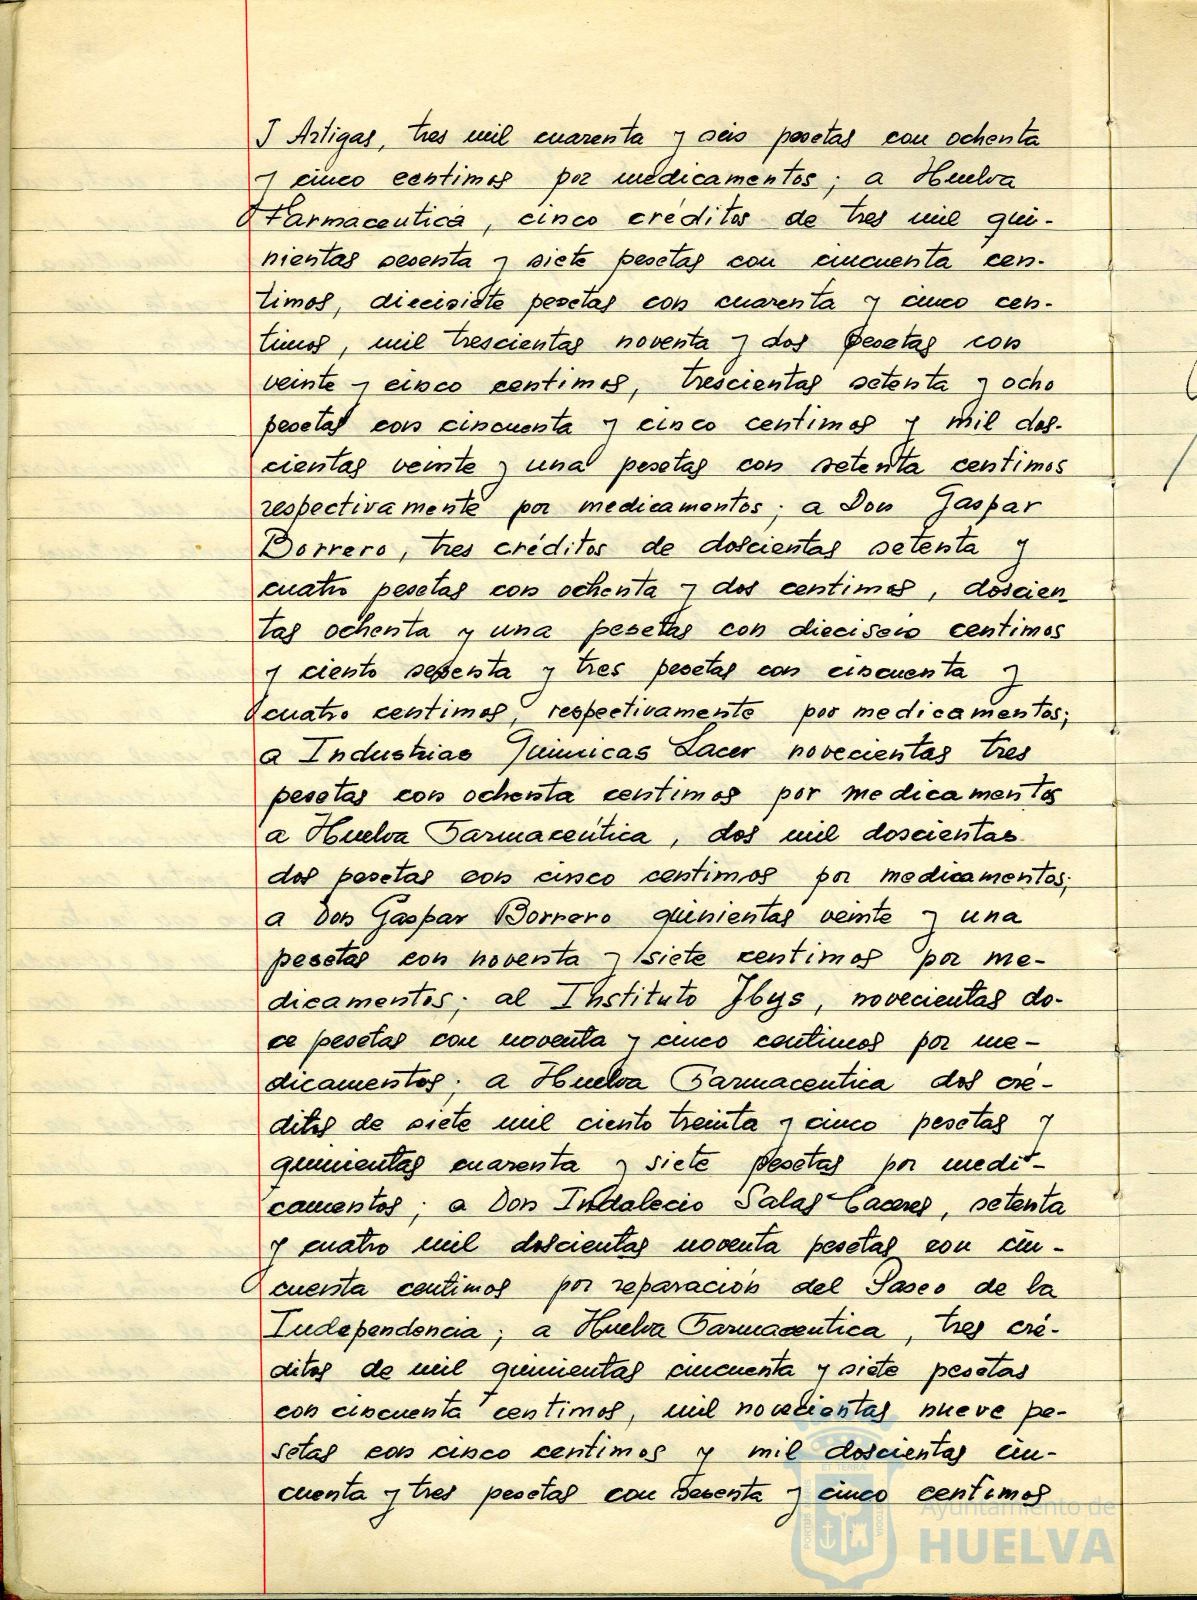 J Artigas, tres mil cuarenta y seis pesetas con ochenta
y cinco centimos por medicamentos; a Huelva
Farmaceutica, cinco créditos de tres mil qui-
nientas sesenta y siete pesetas con cincuenta cen-
timos, diecisiete pesetas con cuarenta y cinco cen-
timos, mil trescientas noventa y dos pesetas con
veinte y cinco centimos, trescientas setenta y ocho
pesetas con cincuenta y cinco centimos y mil dos-
cientas veinte y una pesetas con setenta centimos
respectivamente por medicamentos; a Don Gaspar
Borrero, tres créditos de doscientas setenta y
cuatro pesetas con ochenta y dos centimos, doscien
tas ochenta y una pesetas con dieciseis centimos
y ciento sesenta y tres pesetas con cincuenta y
cuatro centimos, respectivamente por medicamentos;
a Industrias Quimicas Lacer novecientas tres
pesetas con ochenta centimos por medicamentos
a Huelva Farmaceútica, dos mil doscientas
dos pesetas con cinco centimos por medicamentos;
a Don Gaspar Borrero quinientas veinte y una
pesetas con noventa y siete centimos por me-
dicamentos; al Instituto Ibys, novecientas do-
ce pesetas con noventa y cinco centimos por me-
dicamentos; a Huelva Farmaceutica dos cré-
ditos de siete mil ciento treinta y cinco pesetas y
quinientas cuarenta y siete pesetas por medi-
camentos; a Don Indalecio Salas Caceres, setenta
y cuatro mil doscientas noventa pesetas con cin-
cuenta centimos por reparación del Paseo de la
Independencia; a Huelva Farmaceutica, tres cré-
ditos de mil quinientas cincuenta y siete pesetas
con cincuenta centimos, mil novecientas nueve pe-
setas con cinco centimos y mil doscientas cin-
cuenta y tres pesetas con sesenta y cinco centimos
Ayuntamiento de
HUELVA